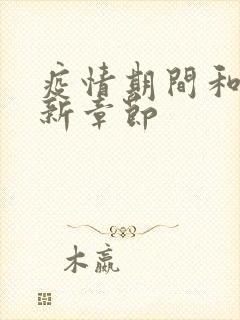 疫情期間和
新章節
木嬴